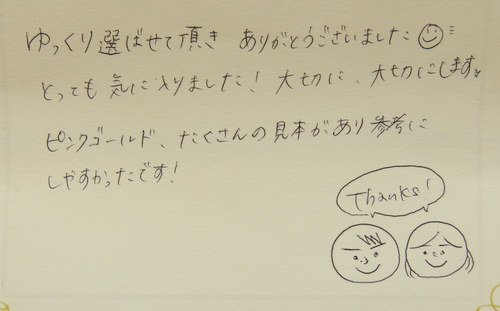 ゆっくり選ばせて頂き ありがとうございました
とっても 気に入りました! 大切に、大切にします。
ピンクゴールド、たくさんの見本があり 参考に
しやすかったです!
Thanks!